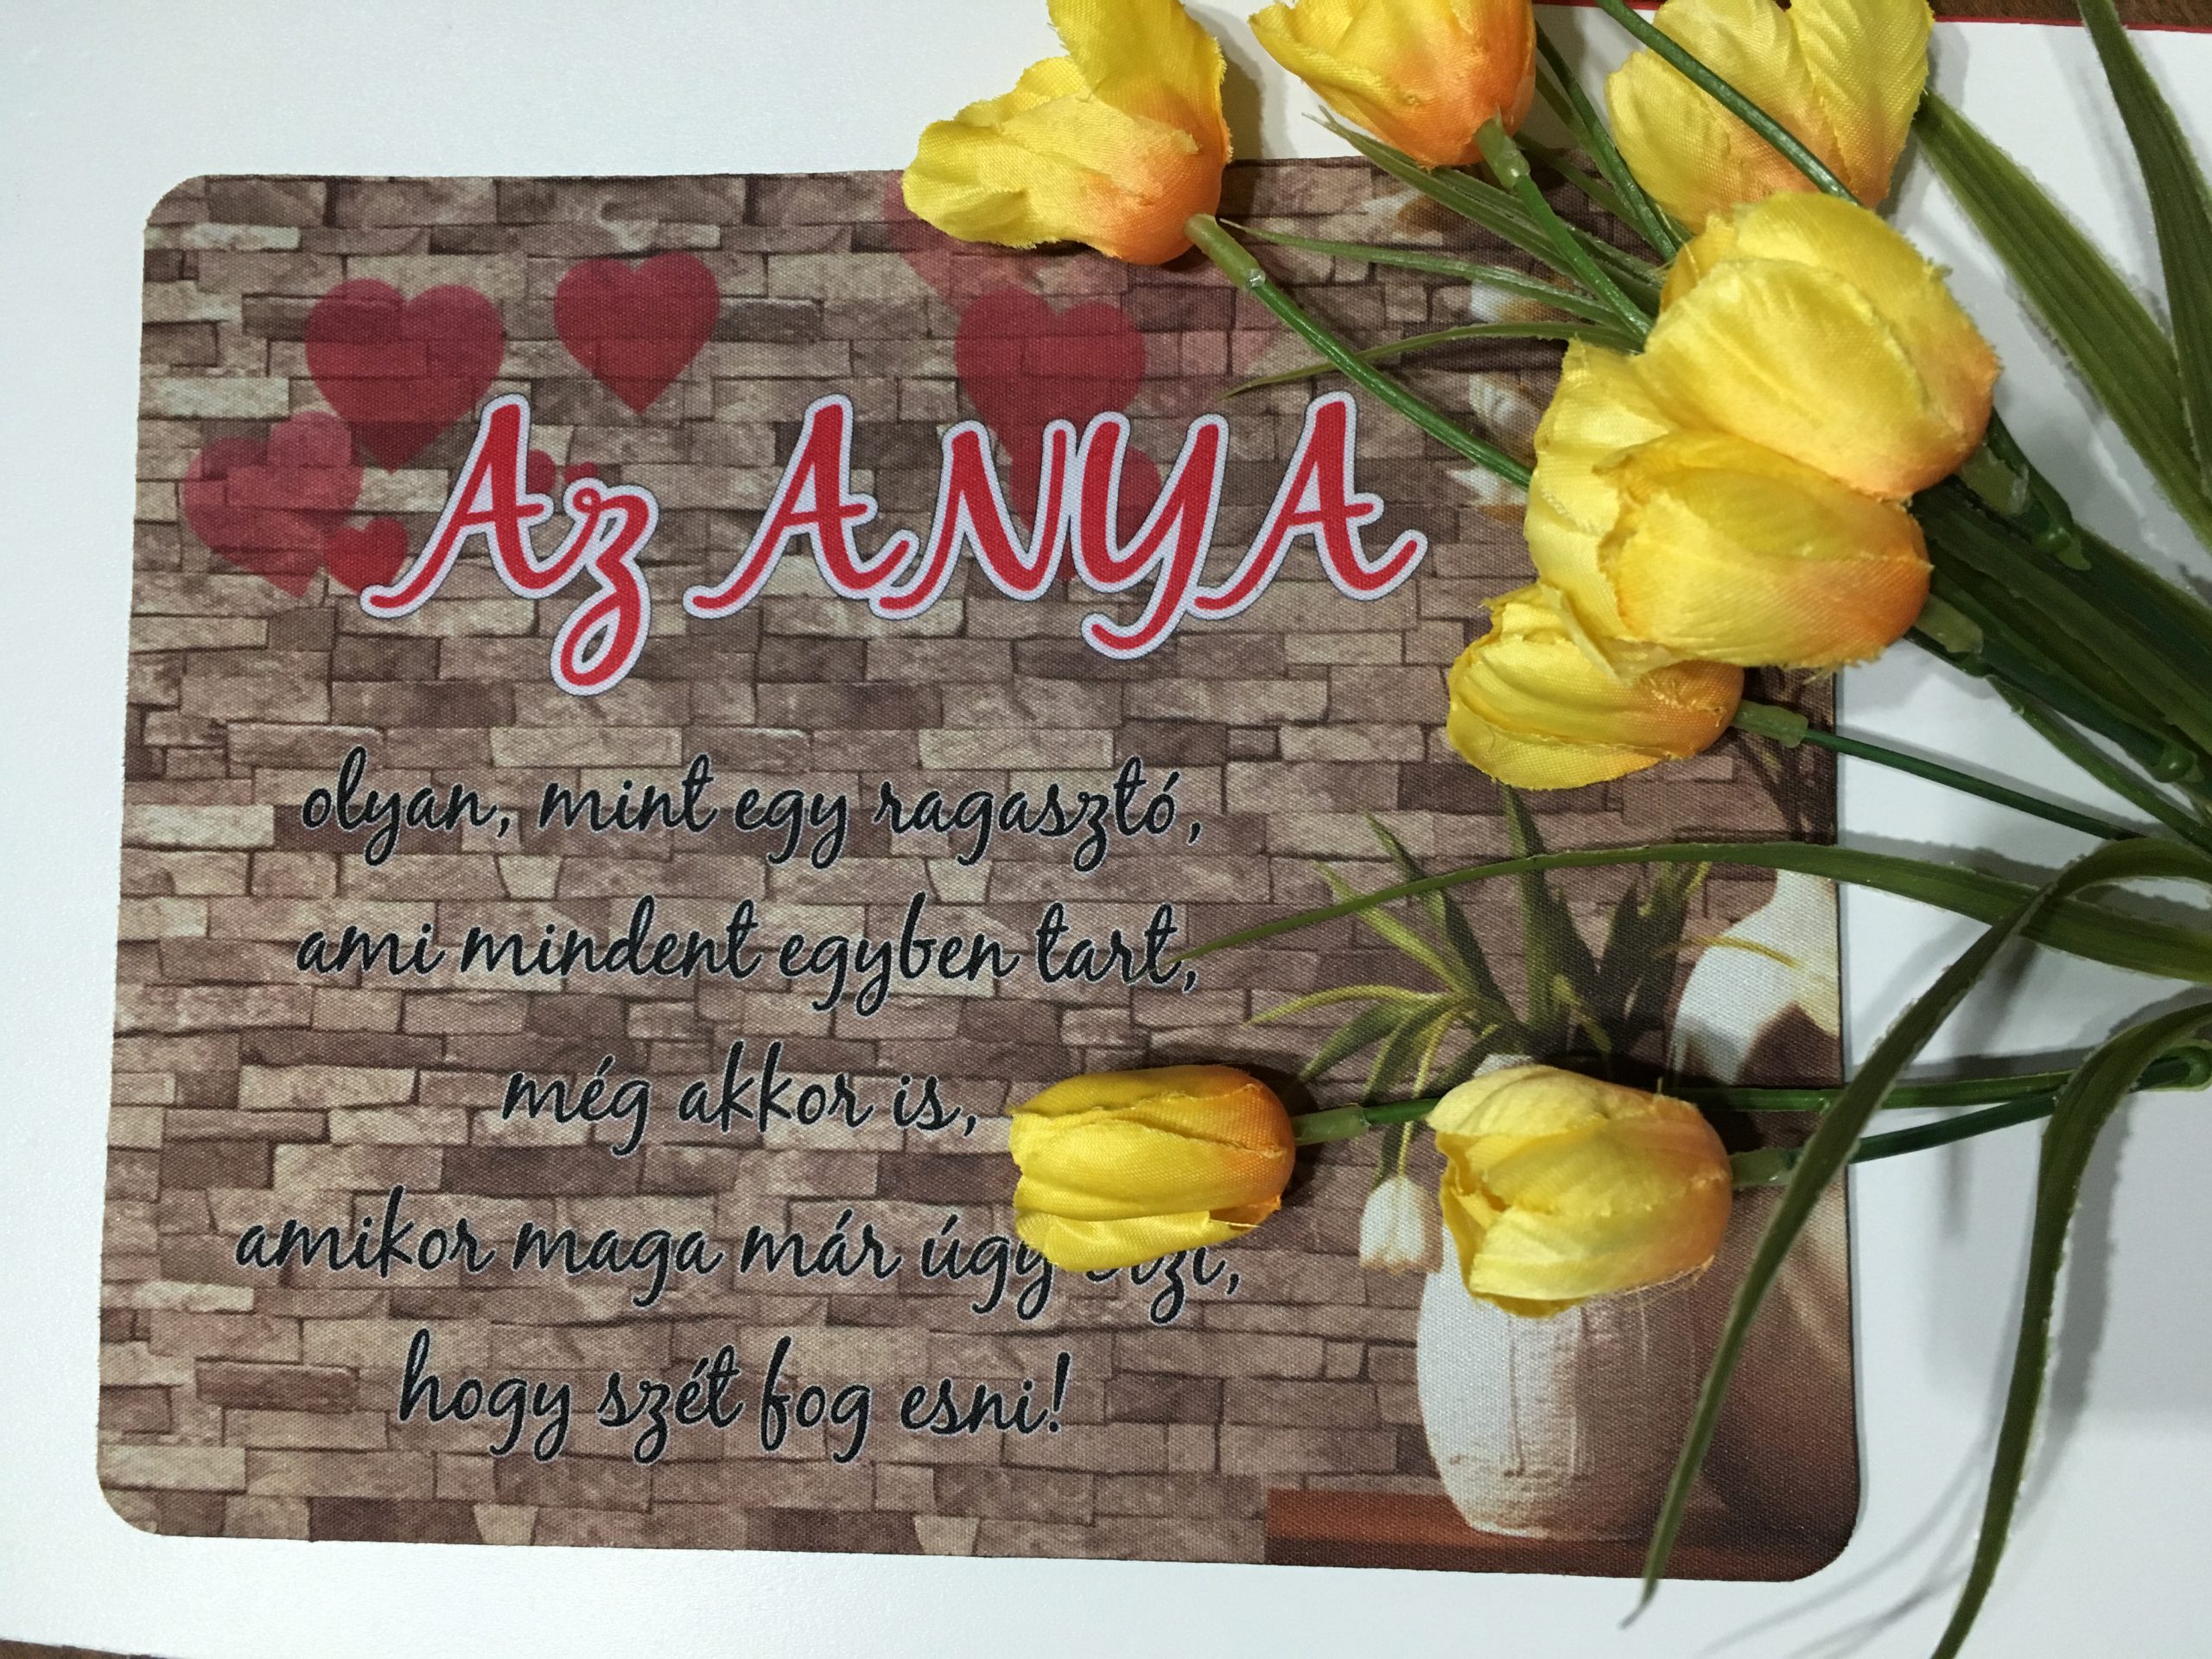 Az ANYA
olyan, mint egy ragasztó,
ami mindent egyben tart,
még akkor is,
amikor maga már úgy
hogy szét fog esni!